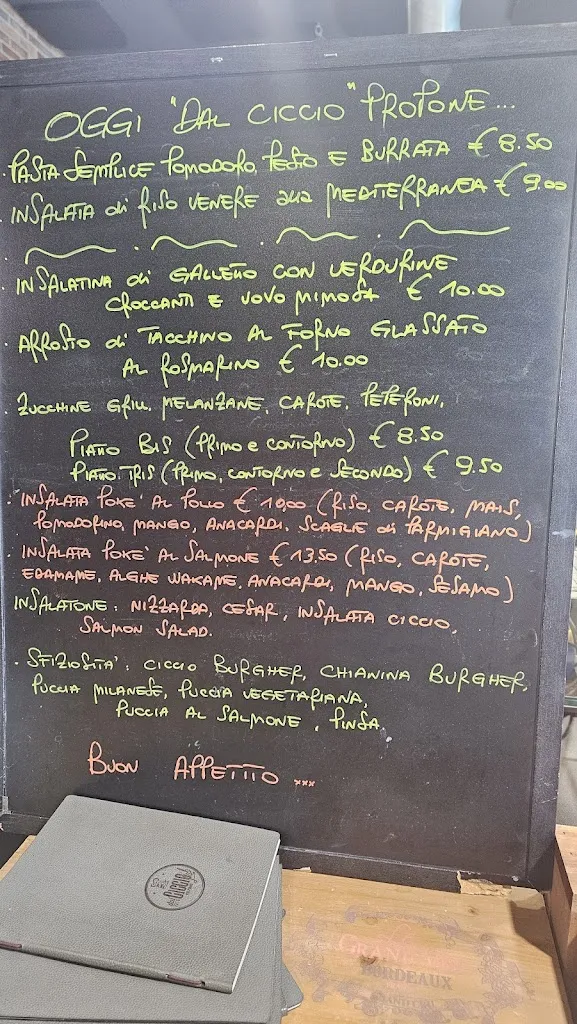 OGGI "DAL CICCIO" PROPONE...
· PASTA SEMPLICE POMODORO, PESTO E BURRATA € 8.50
· INSALATA di RISO VENERE alla MEDITERRANEA € 9.00
· INSALATINA di GALLETTO CON VERDURINE
CROCCANTI E UOVO MIMOSA € 10.00
· ARROSTO di TACCHINO AL FORNO GLASSATO
AL ROSMARINO € 10.00
· ZUCCHINE GRILL, MELANZANE, CAROTE, PEPERONI,
PIATTO BIS (PRIMO e CONTORNO) € 8.50
PIATTO TRIS (PRIMO, CONTORNO e SECONDO) € 9.50
· INSALATA POKE' AL POLLO € (RISO, CAROTE, MAIS,
POMODORINO, MANGO, ANACARDI, SCAGLIE di PARMIGIANO)
· INSALATA POKE' AL SALMONE € 13.50 (RISO, CAROTE,
EDAMAME, ALGHE WAKAME, ANACARDI, MANGO, SESAMO)
INSALATONE: NIZZARDA, CESAR, INSALATA CICCIO,
SALMON SALAD.
· SFIZIOSITA': CICCIO BURGHER, CHIANINA BURGHER,
PUCCIA MILANESE, PUCCIA VEGETARIANA,
PUCCIA AL SALMONE, PINSA.
BUON APPETITO...
CICCIO
GRAN
BORDEAUX